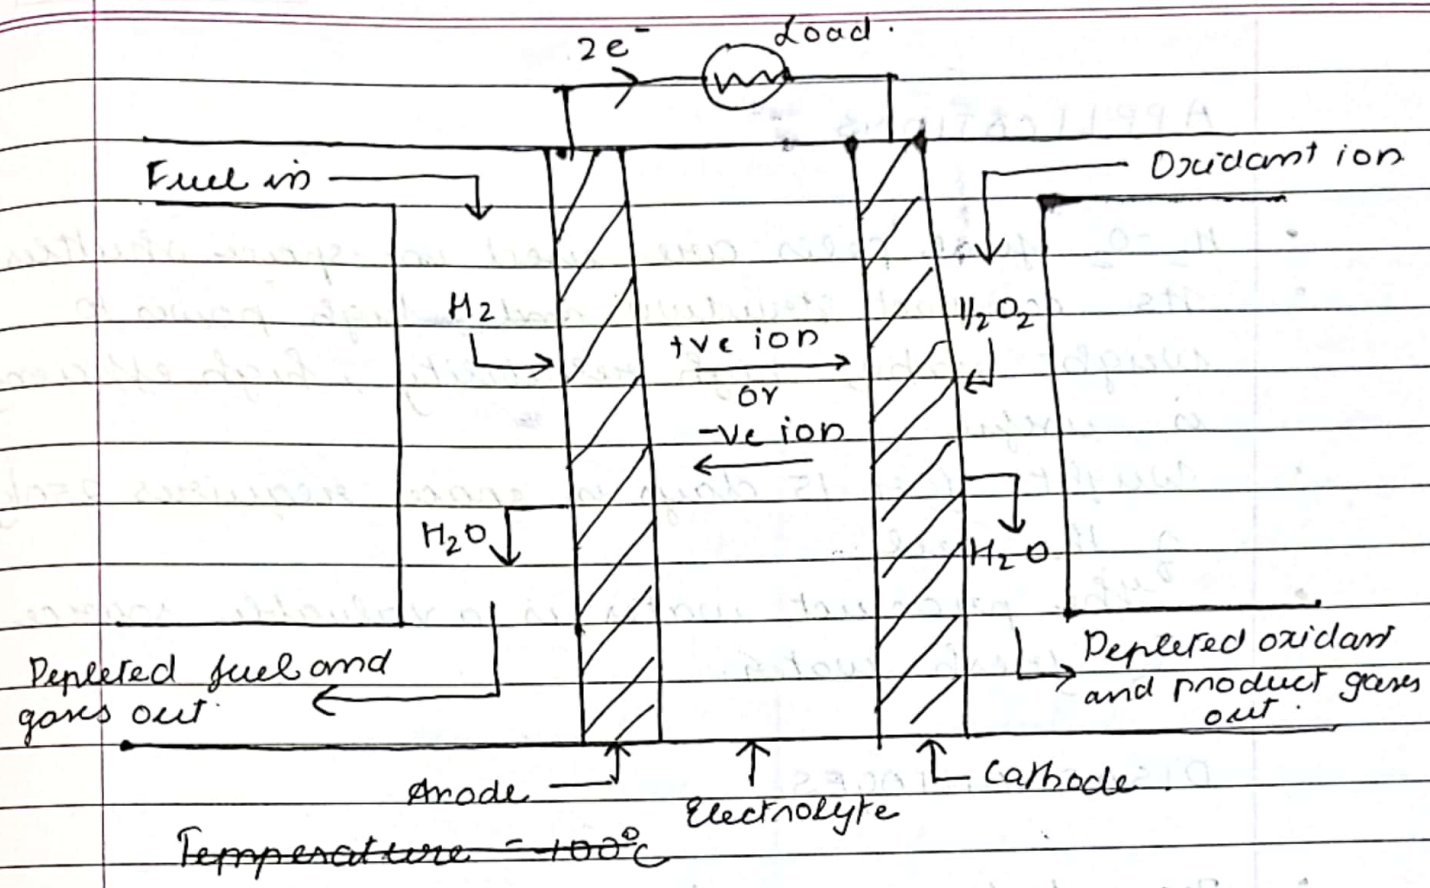 2e⁻
Load.
Fuel in
Oxidant ion
H₂
1/2O₂
+ve ion
or
-ve ion
H₂O
H₂O
Depleted fuel and
gases out.
Depleted oxidant
and product gases
out.
Anode
Electrolyte
Cathode.
Temperature = 100°C